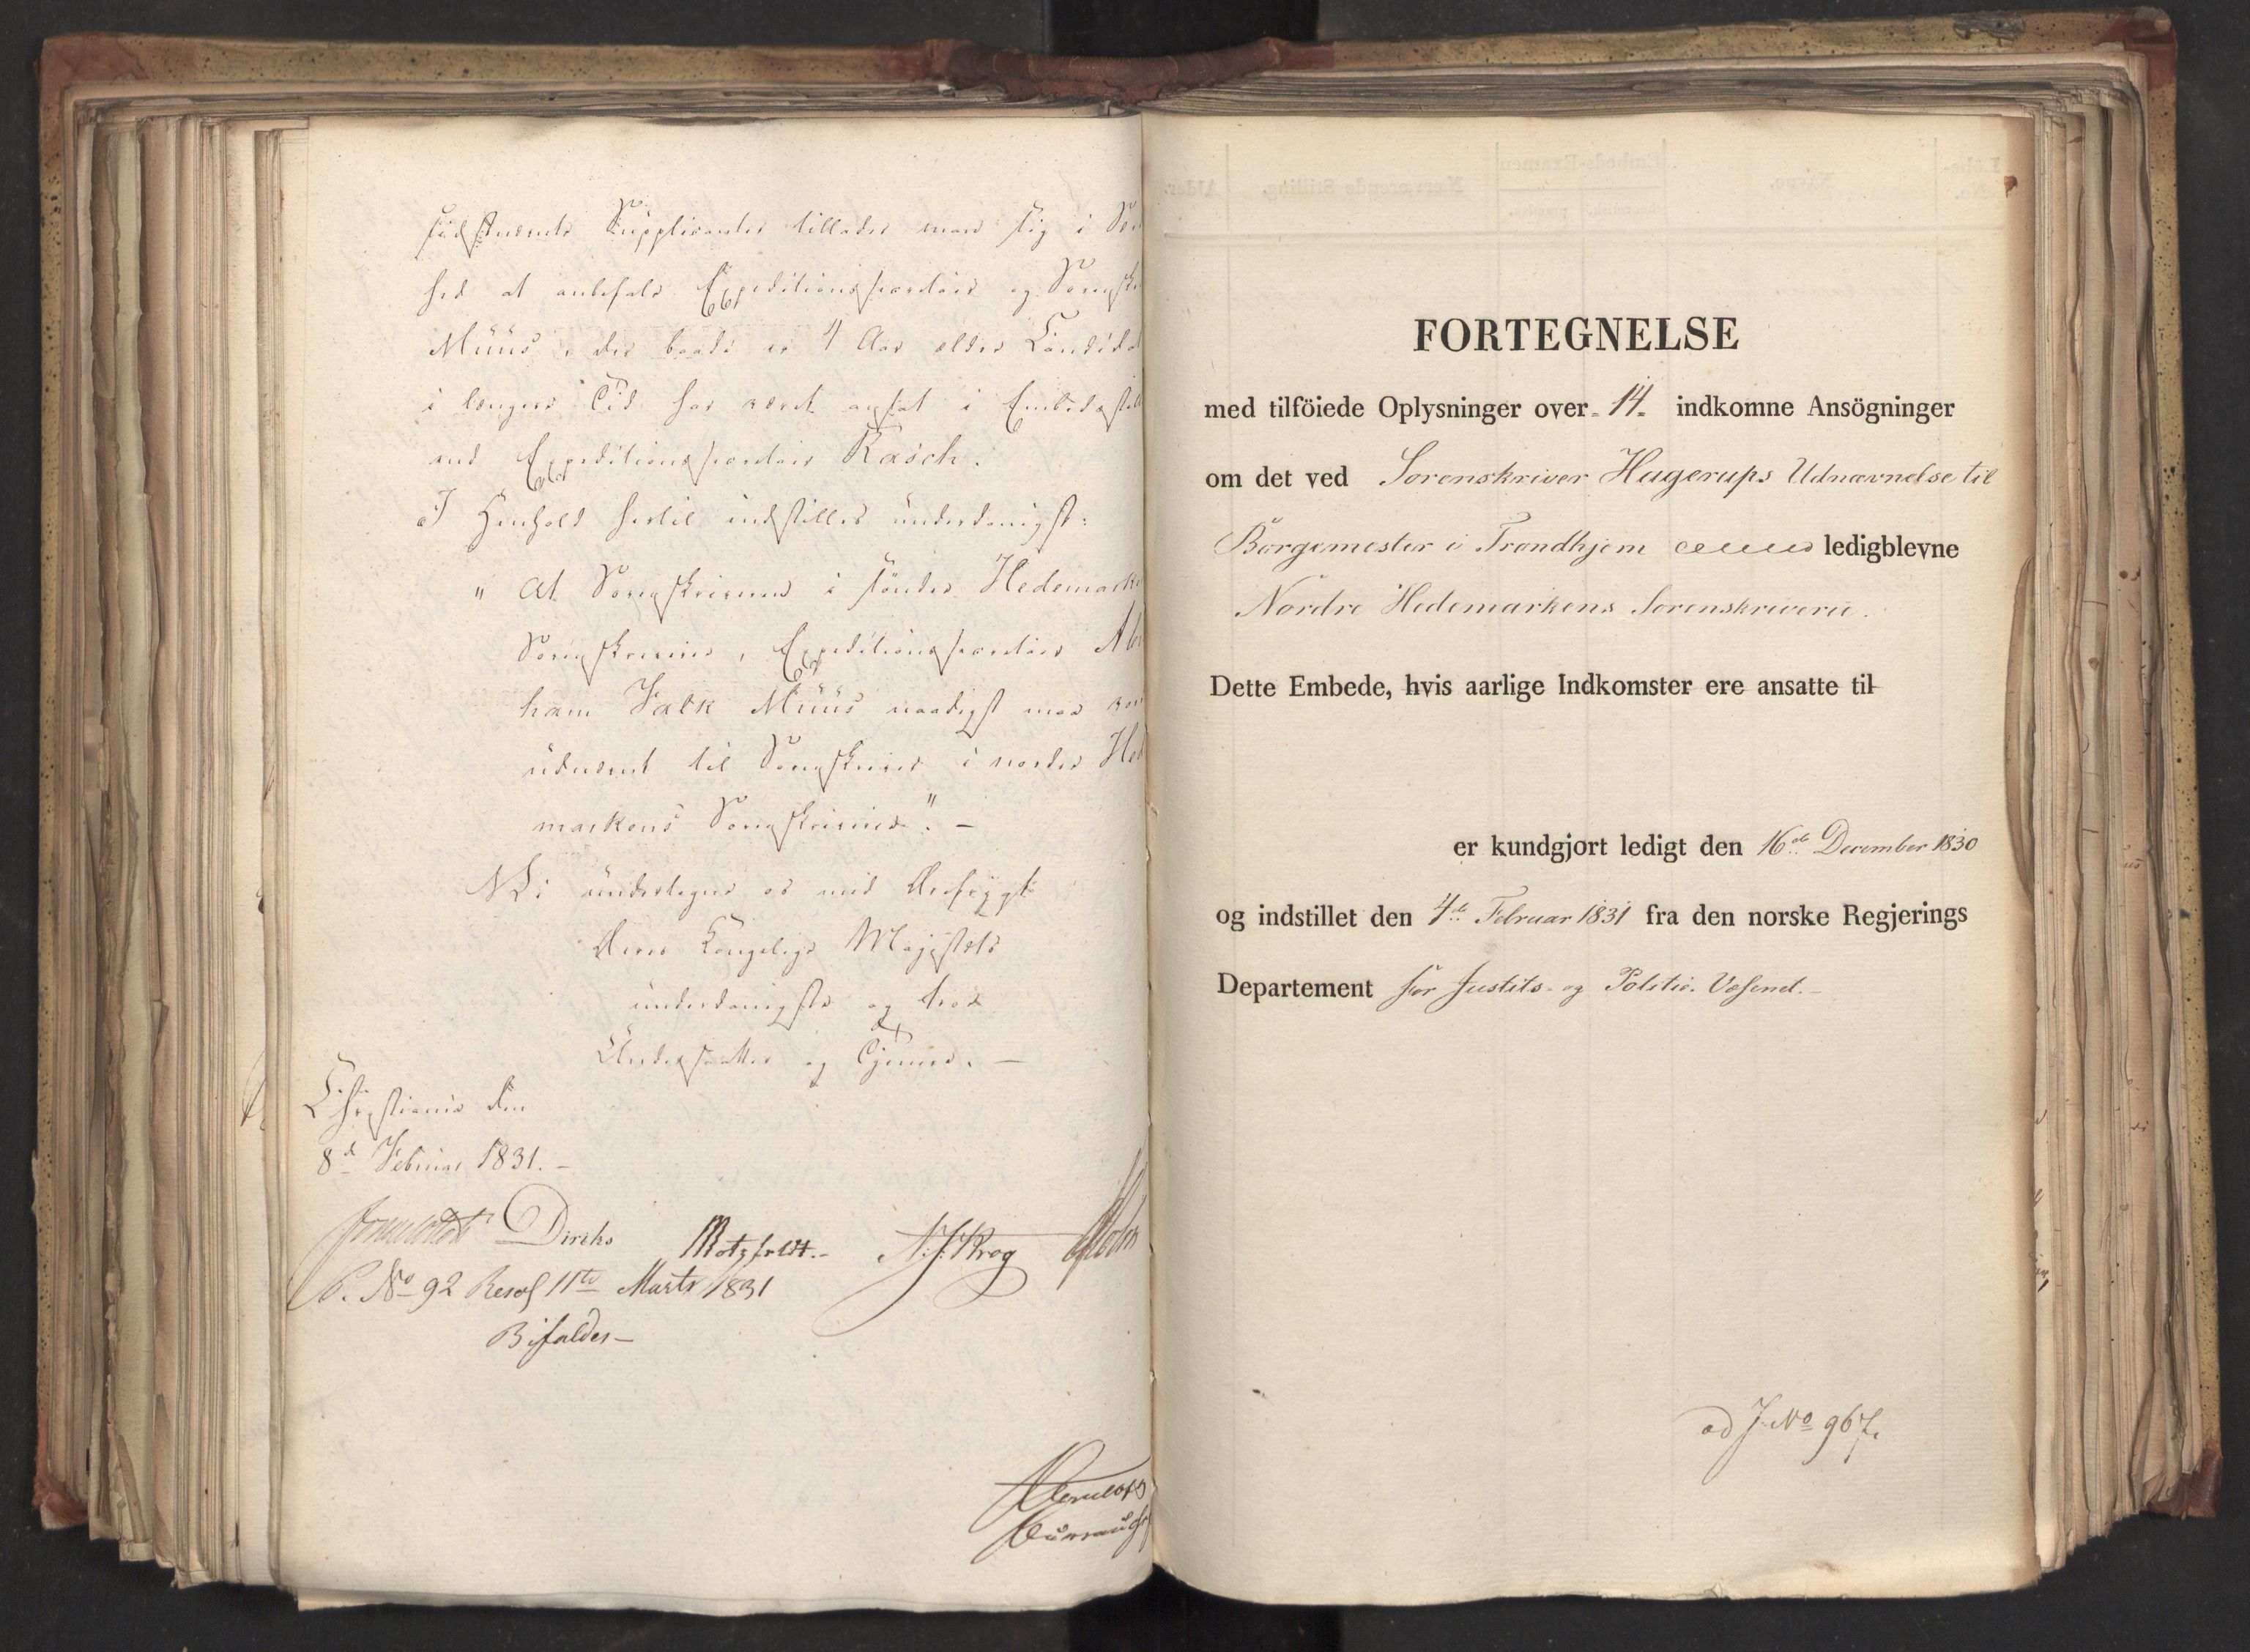 sidstnævnte Supplicanter tillader man sig i
hed at anbefale Expeditionssecretair og
Müus, der baade er 4 Aar ældre Candidat
i længere Tid har været ansat i
end Expeditionssecretair Rasch.
I Henhold hertil indstilles underdanigst:
" At Sorenskriveren i søndre Hedemark
Sorenskriverie, Expeditionssecretair Abr
ham Falk Müus naadigst maa
udnævnt til Sorenskriver i nordre Hed
markens Sorenskriverie". —
Vi undertegne os med Ærefrygt
Deres Kongelige Majestæts
underdanigste og troe
Undersaatter og Tjenere. —
Christiania den
8de Februar 1831. —
Diriks Motzfeldt. – N. J. Krog
No 92 Resol 11te Marts 1831
Bifaldes —
FORTEGNELSE
med tilföiede Oplysninger over 14 indkomne Ansögninger
om det ved Sorenskriver Hagerups Udnævnelse til
Borgemester i Trondhjem ledigblevne
Nordre Hedemarkens Sorenskriverie.
Dette Embede, hvis aarlige Indkomster ere ansatte til
er kundgjort ledigt den 16de December 1830
og indstillet den 4de Februar 1831 fra den norske Regjerings
Departement for Justits- og Politie-Vesenet. –
ad J No 967.